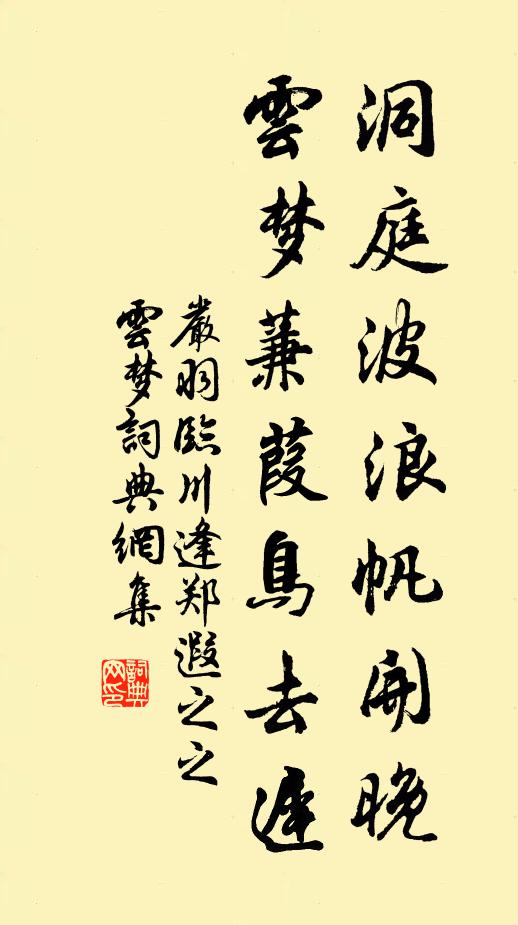 洞庭波浪帆開晚
雲梦蒹葭鳥去遲
嚴羽臨川逢郑遐之之
雲梦詞典網集
詞典
网印